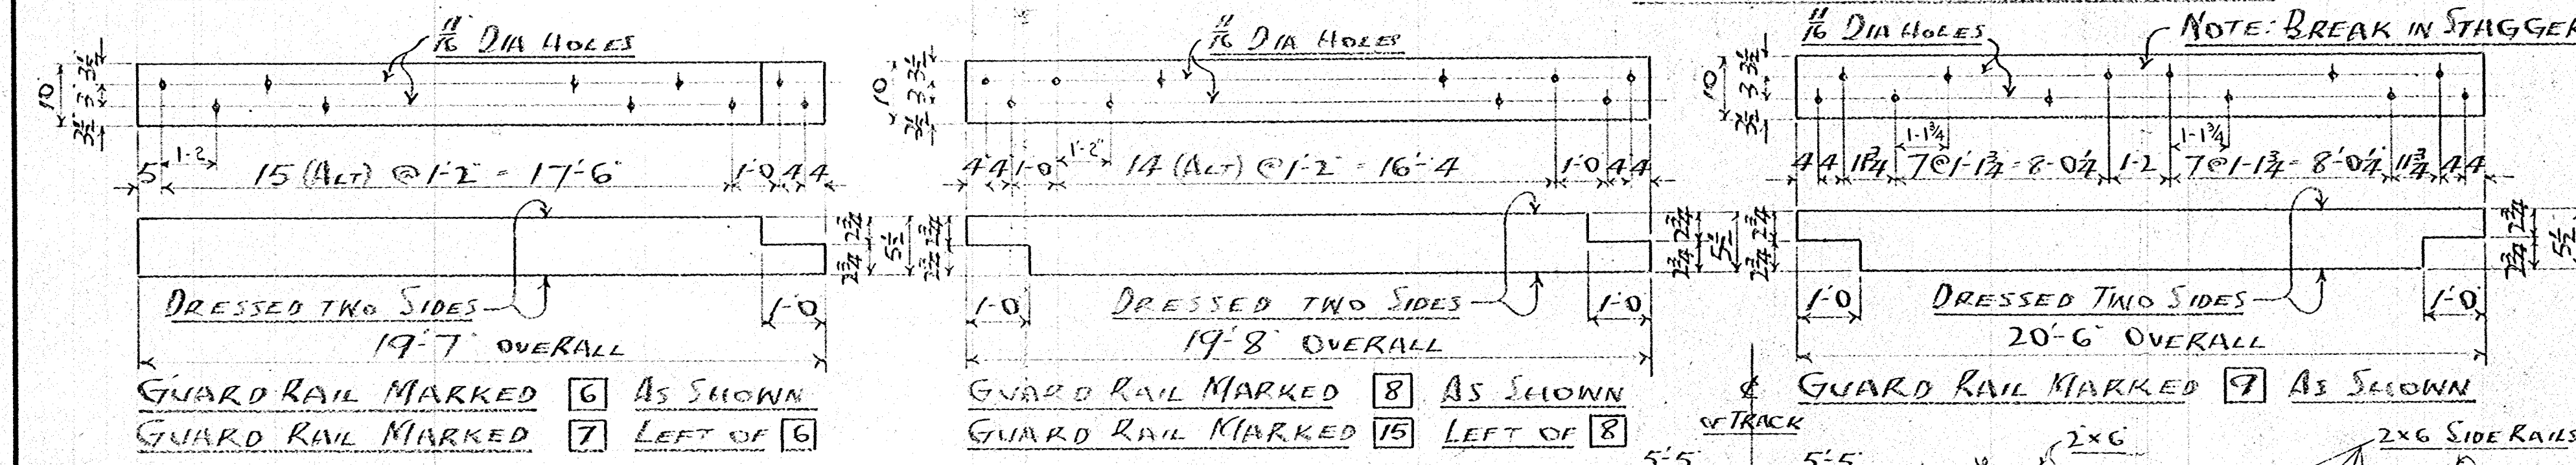 11/16 DIA HOLES
10
3½ 3 3½
5 1-2 15 (ALT) @ 1-2 = 17'-6" 1-0 4 4
2¾ 2¾
5½
DRESSED TWO SIDES
1'-0
19'-7" OVERALL
GUARD RAIL MARKED 6 AS SHOWN
GUARD RAIL MARKED 7 LEFT OF 6
11/16 DIA HOLES
10
3½ 3 3½
4 4 1-0 1-2" 14 (ALT) @ 1-2" = 16'-4 1-0 4 4
2¾ 2¾
2¾ 2¾
5½
1-0
DRESSED TWO SIDES
1-0
19'-8" OVERALL
GUARD RAIL MARKED 8 AS SHOWN
GUARD RAIL MARKED 15 LEFT OF 8
11/16 DIA HOLES
NOTE: BREAK IN STAGGER
10
3½ 3 3½
1-1¾ 1-1¾
4 4 11¾ 7@1'-1¾ = 8-0¼ 1-2 7@1-1¾ = 8'-0¼ 11¾ 4 4
2¾ 2¾
2¾ 2¾
5½
1'-0
DRESSED TWO SIDES
1'-0
20'-6" OVERALL
GUARD RAIL MARKED 9 AS SHOWN
℄
OF TRACK
5'-5" 5'-5"
2"x6"
2x6 SIDE RAILS